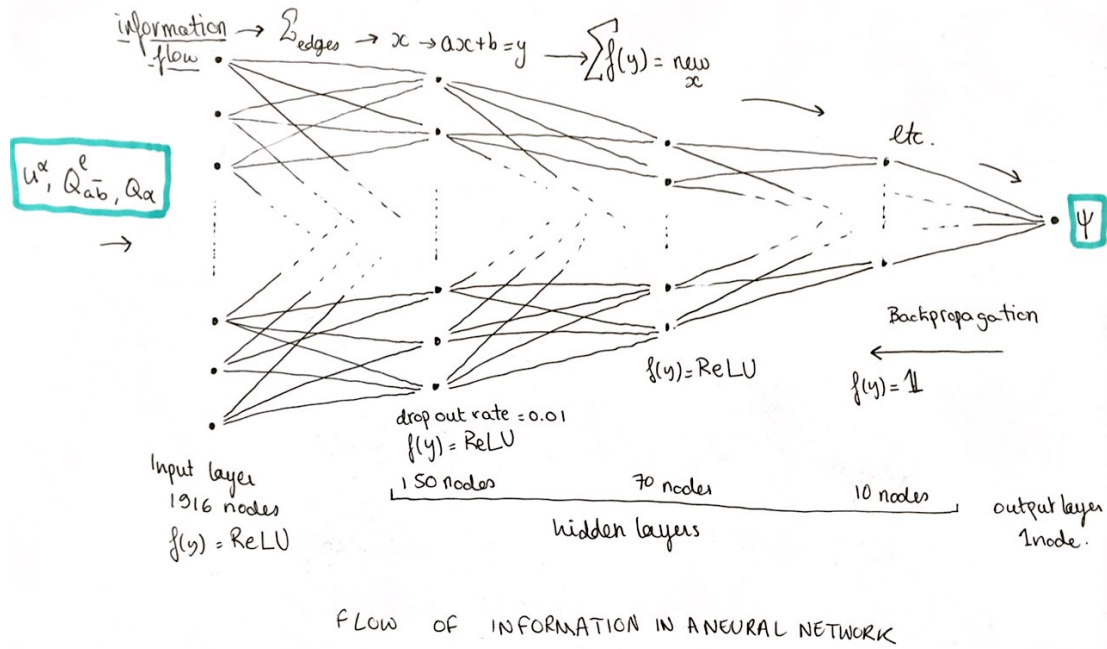 information → Σedges → x → ax+b=y → Σf(y) = new x
flow
etc.
u^α, Q^l_ab̄, Qα
→
ψ
Backpropagation
f(y)=𝟙
f(y)=ReLU
drop out rate = 0.01
f(y) = ReLU
Input layer
1916 nodes
f(y) = ReLU
150 nodes
70 nodes
10 nodes
hidden layers
output layer
1 node.
FLOW OF INFORMATION IN A NEURAL NETWORK